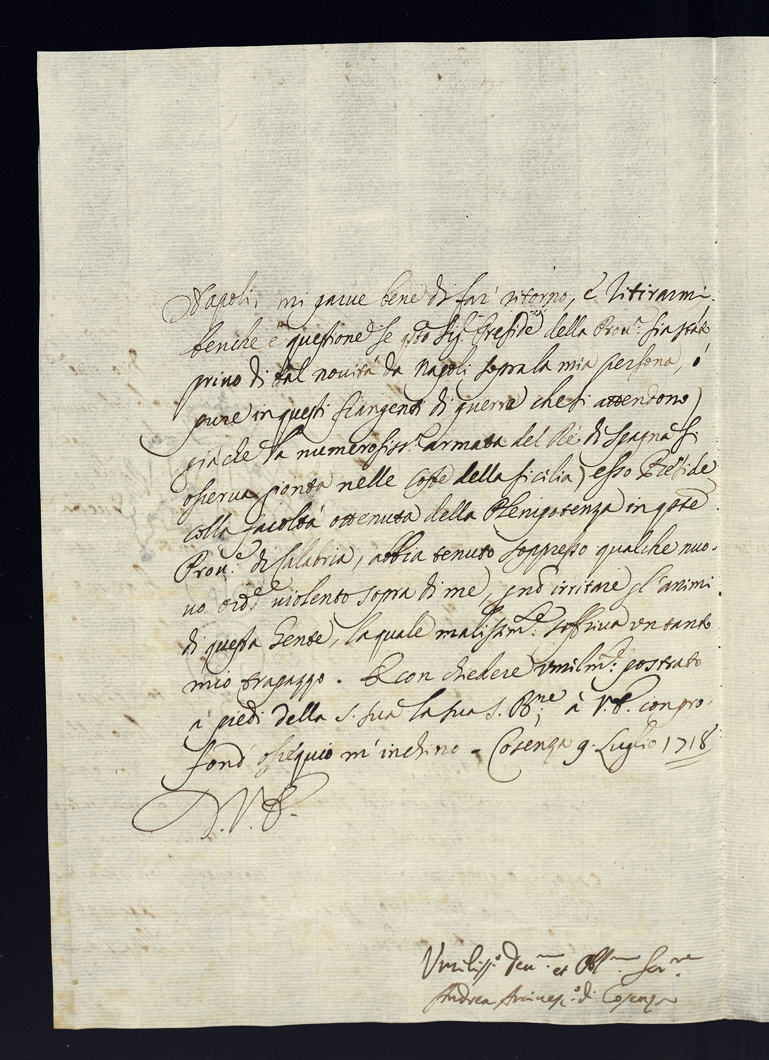 Napoli, mi parue bene di far' ritorno, e ritirarmi.
benche è questione se q.sto Sig.r Preside della Prou.a sia stato
priuo di tal nouità da Napoli sopra la mia persona, ò
pure in questi frangenti di guerra che si attendono)
già che la numerosiss.a armata del Rè di Spagna si
osserua gionta nelle Coste della Sicilia) esso Preside
colla facoltà ottenuta della Plenipotenza in q.ste
Prou.e di Calabria, abbia tenuto soppresso qualche nuo-
uo ord.e uiolento sopra di me, p nõ irritare gl'animi
di questa Gente, la quale malissim.te soffriua un tanto
mio strapazzo. E con chiedere umilm.te postrato
a piedi della S. sua la sua S. B.ne, à V.E. con pro-
fond' ossequio m'inchino = Cosenza 9 Luglio 1718
D.V.E.
Vmiliss.o Deu.mo et Obl.mo Ser.re
Andrea Arciuesc.o di Cosenza